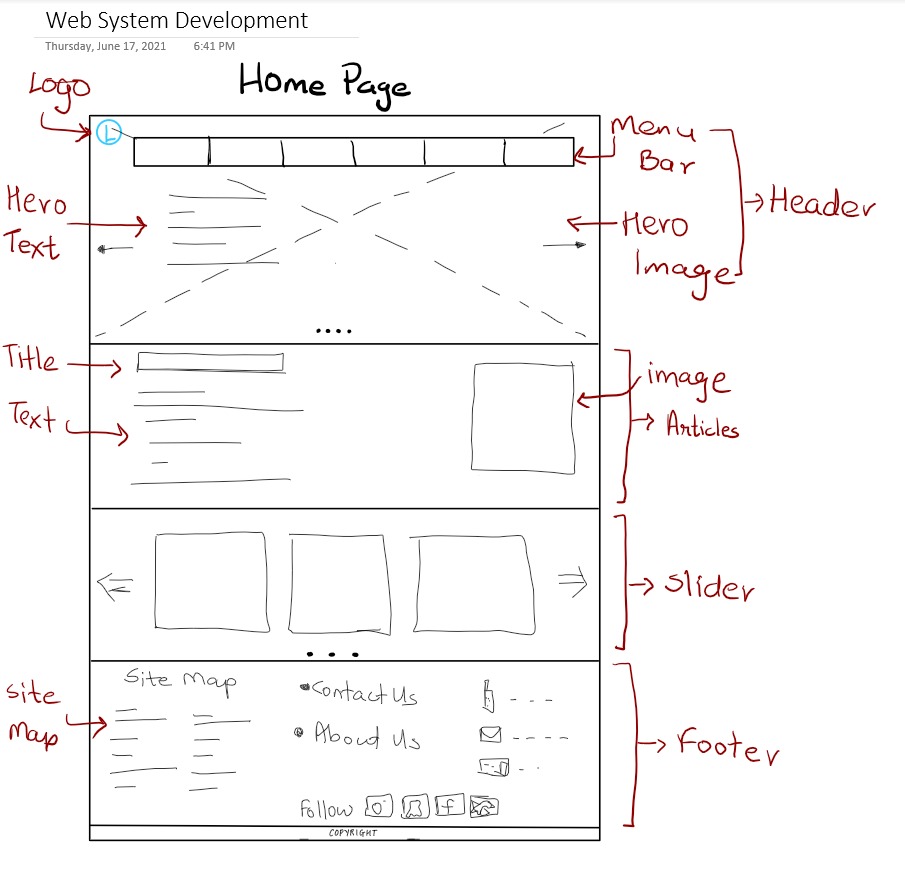 Web System Development
Thursday, June 17, 2021 6:41 PM
Home Page
Logo
L
Menu
Bar
Header
Hero
Text
Hero
Image
Title
Text
image
Articles
Slider
Site Map
Site
Map
Contact Us
About Us
Footer
Follow
f
COPYRIGHT